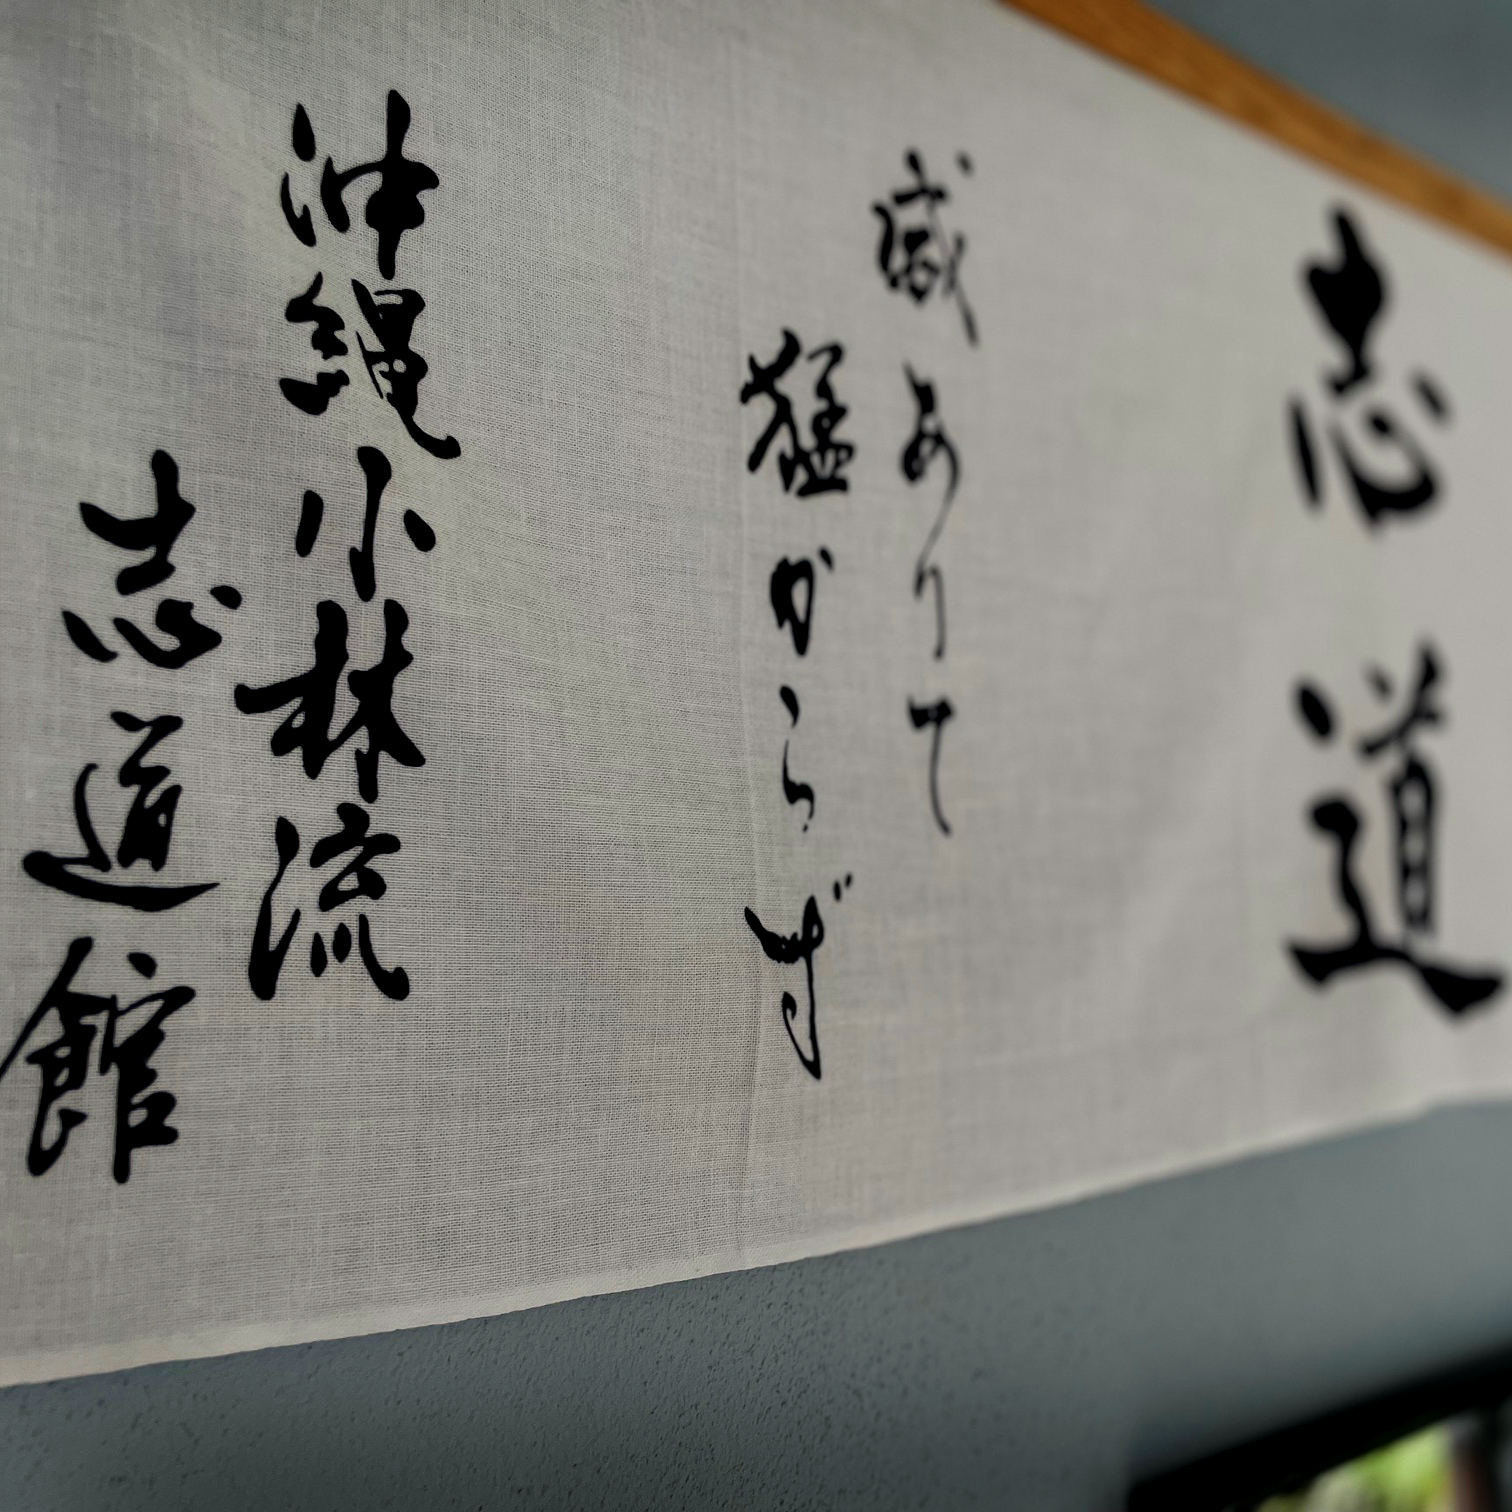 志道
威ありて
猛からず
沖縄小林流
志道館